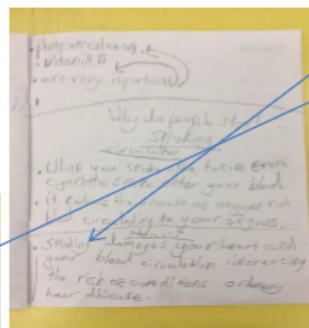 vitamin D
are very iportant
Why do people start
smoking
circulation
When you smoke the toxins from
cigarette smoke enter your blood
it reduce the amount of oxygen rich
blood circulating to your organs.
Heart
smoking damages your heart and
your blood circulation increasing
the risk of conditions
hear disease.